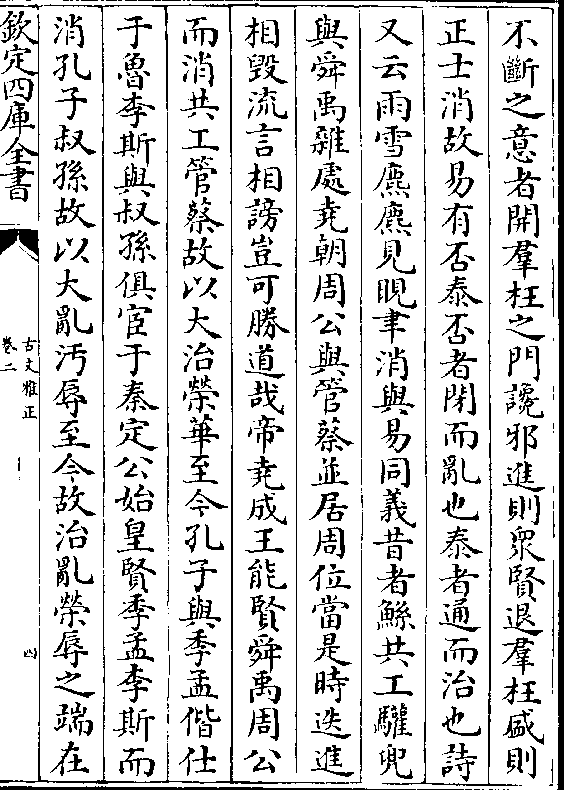 不斷之意者開羣枉之門讒邪進則衆賢退羣枉盛則
正士消故易有否泰否者閉而亂也泰者通而治也詩
又云雨雪麃麃見晛聿消與易同義昔者鯀共工驩兜
與舜禹雜處堯朝周公與管蔡並居周位當是時迭進
相毀流言相謗豈可勝道哉帝堯成王能賢舜禹周公
而消共工管蔡故以大治榮華至今孔子與季孟偕仕
于魯李斯與叔孫俱宦于秦定公始皇賢季孟李斯而
消孔子叔孫故以大亂汚辱至今故治亂榮辱之端在
欽定四庫全書
古文雅正
卷二
四